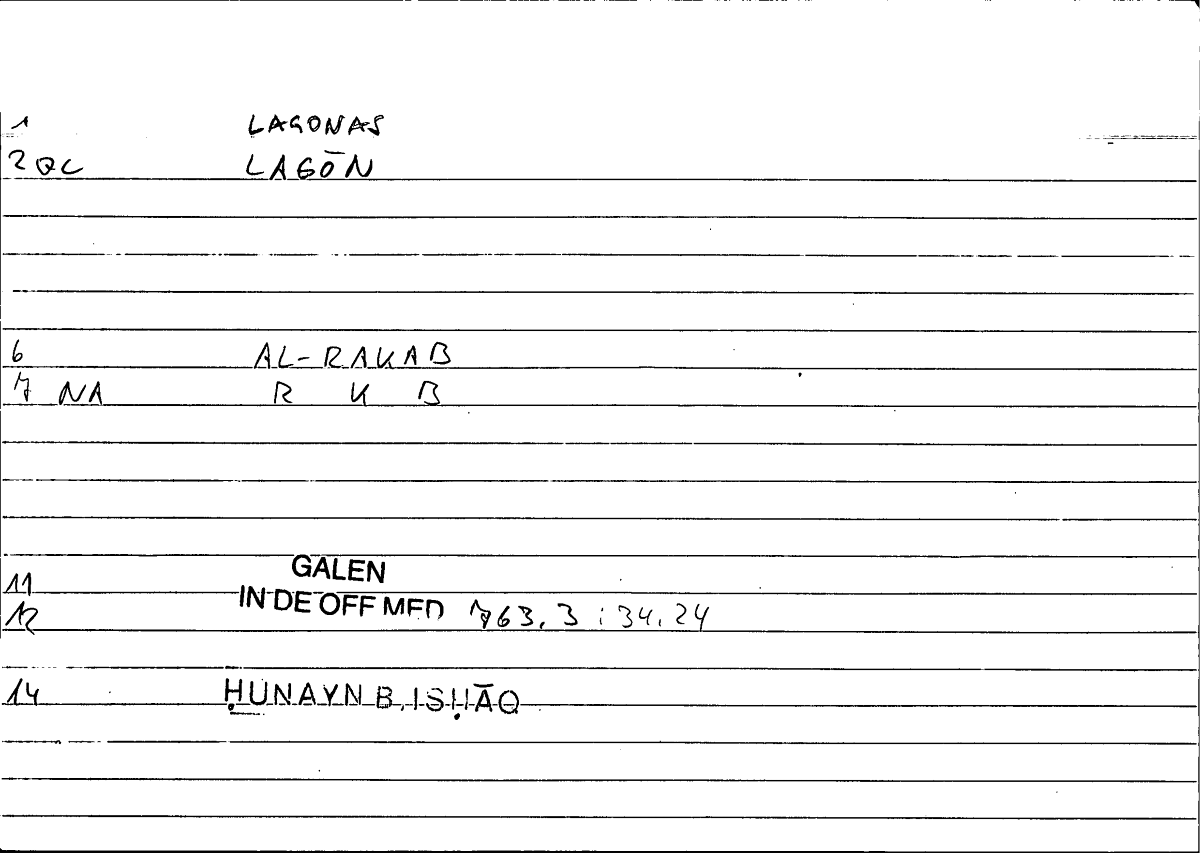 1 LAGONAS
2 QC LAGŌN
6 AL-RAKAB
7 NA R K B
GALEN
11
12 IN DE OFF MED 763.3 : 34.24
14 ḤUNAYN B. ISḤĀQ